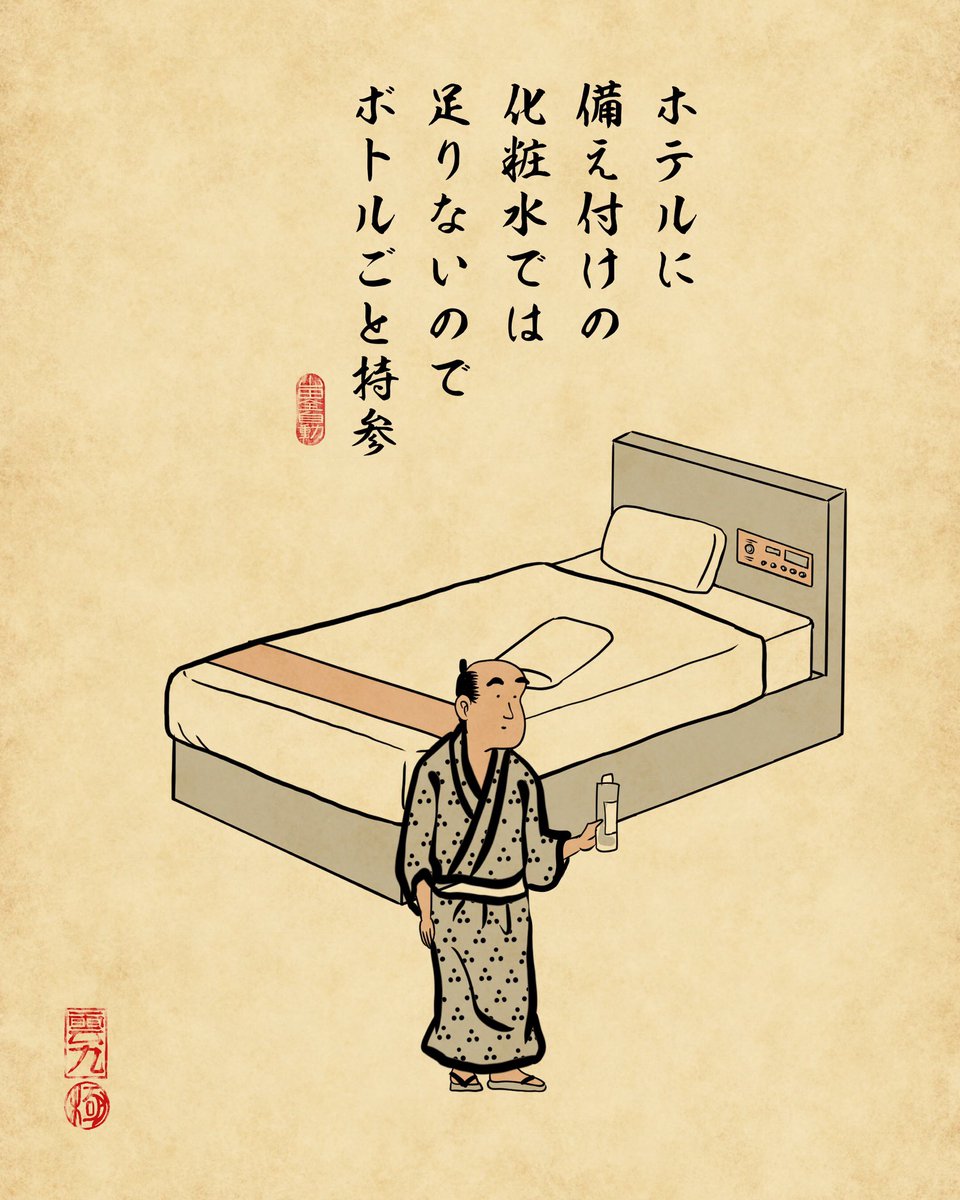 ホテルに
備え付けの
化粧水では
足りないので
ボトルごと持参